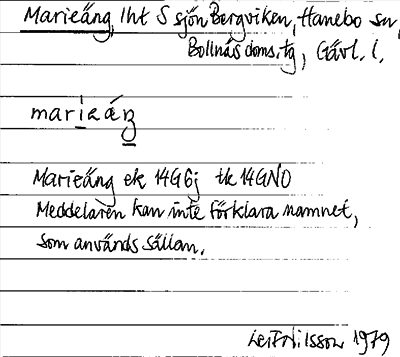 Marieäng, lht S sjön Bergviken, Hanebo sn,
Bollnäs doms.tg, Gävl. l.
marieáŋ
Marieäng ek 14G6j tk 14GNO
Meddelaren kan inte förklara namnet,
som används sällan.
Leif Nilsson 1979